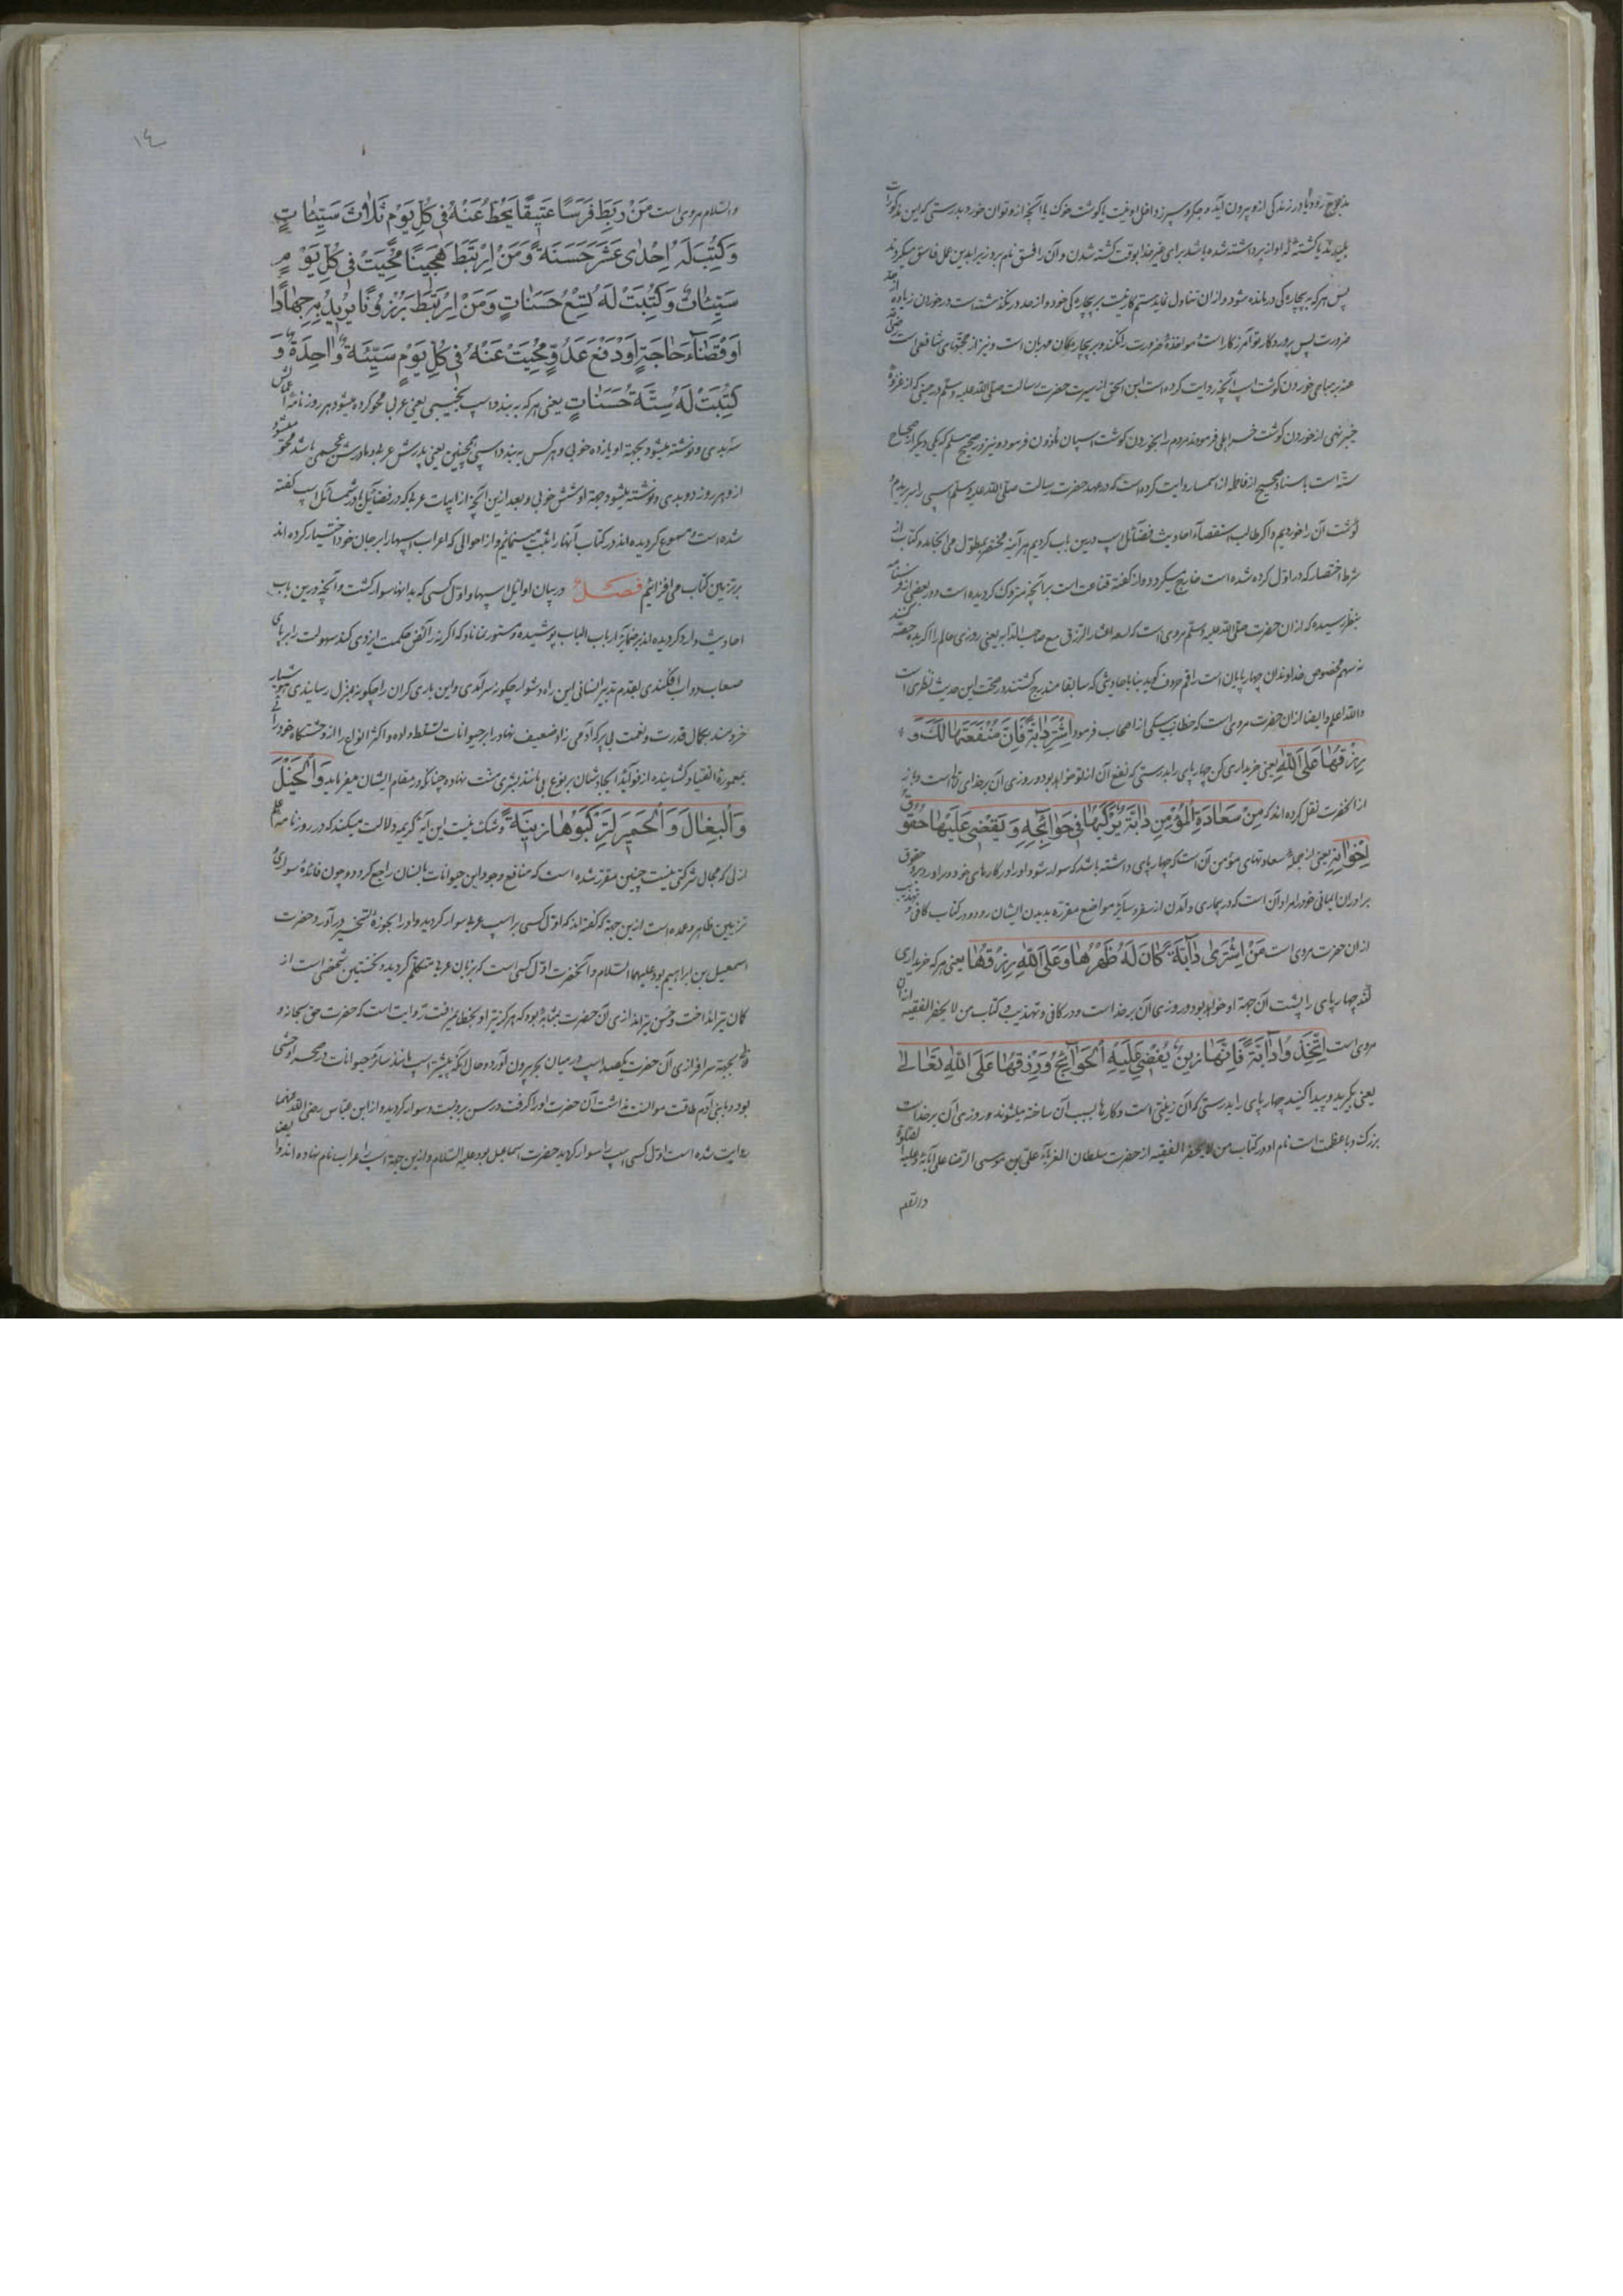 بذبوح زود یا در زندکی ازو بیرون آید و جکر و سپرز داخل او نیست یا کوشت خوک یا آنچه ازو توان خورد بدرستی که این مذکورات
پلیدند یا کشته که او از پرداشته شده باشد برای غیر خدا بوقت کشته شدن و آن را فسق نام برد زیرا بدین عمل فاسق میکردند
پس هر که به بیچاره کی درمانده شود و ازان تناول نماید ستم کار نیست بر بیچاره کی خود و از حد در نکذشته است در خوردن زیاده از حد
ضرورت پس پروردکار تو آمرزکار است مواخذهٔ ضرورت را نکند و بر بیچاره کان مهربان است و نیز از محتوای شافعی است رضی
عنه بر مباحی خوردن کوشت اسب آنچه روایت کرده است ابن اسحق از سیرت حضرت رسالت صلی الله علیه وسلم در حینی که از غزوهٔ
خیبر نهی از خوردن کوشت خر اهلی فرمودند مردم را بخوردن کوشت اسپان ماذون فرمود و نیز در صحیح مسلم که یکی دیکر از صحاح
سته است باسناد صحیح از فاطمه از اسما روایت کرده است که در عهد حضرت رسالت صلی الله علیه وسلم اسپی را سر بریدیم و
کوشت آن را خوردیم و اکر طالب استقصآء احادیث فضآئل اسب درین باب کردیم هر آینه مختصر بمطول می انجامد و کتاب از
شرط اختصار که در اول کرده شده است خارج میکردد و از کفته قناعت است بر آنچه متروک کردیده است و در بعضی از
بنظر رسیده که ازان حضرت صلی الله علیه وسلم مروی است که تسعه اعشار الرزق مع صاحب الدابه یعنی روزی عالم را اکر بده حصه کنند
نه سهم مخصوص خداوندان چهارپایان است راقم حروف کوید بنا باحادیثی که سابقا مندرج کشتند در صحت این حدیث نظری است
والله اعلم و ایضا ازان حضرت مروی است که خطاب بیکی از اصحاب فرمود اِشْتَرِ دابَّةً فَاِنَّ مَنْفَعَتَها لَکَ وَ
رِزْقَها عَلَی اللهِ یعنی خریداری کن چهارپای را بدرستی که نفع آن از تو خواهد بود و روزی آن بر خدای تعالی است
از آنحضرت نقل کرده اند که مِنْ سَعادَةِ الْمُؤْمِنِ دابَّةٌ یَرْکَبُها فی حَوائِجِهِ وَ یَقْضی عَلَیْها حُقُوقَ
اِخْوانِهِ یعنی از جمله سعادتهای مؤمن آن است که چهارپای داشته باشد که سوار شود او را در کارهای خود و بر آورد بر او حقوق
برادران ایمانی خود را مراد آن است که در بیماری و آمدن از سفر و سایر مواضع مقرره بدیدن ایشان رود و در کتاب کافی و تهذیب
ازان حضرت مروی است مَنْ اِشْتَری دابَّةً کانَ لَهُ ظَهْرُها وَ عَلَی اللهِ رِزْقُها یعنی هر که خریداری
کند چهارپای را پشت آن جهة او خواهد بود و روزی آن بر خدا است و در کافی و تهذیب و کتاب من لا یحضر الفقیه ازان
مروی است اِتَّخِذُوا دابَّةً فَاِنَّها زَیْنٌ یُقْضی عَلَیْهِ الْحَوائِجُ وَ رِزْقُها عَلَی اللهِ تَعالی
یعنی بکیرید و پیدا کنید چهارپای را بدرستی که آن زینتی است و کارها بسبب آن ساخته میشوند و روزی آن بر خدا است
بزرک و با عظمت است نام او و در کتاب من لا یحضر الفقیه از حضرت سلطان الغربآء علی بن موسی الرضا علی آبائه و علیه
١٤
والسلام مروی است مَنْ رَبَطَ فَرَسًا عَتیقًا یُحَطُّ عَنْهُ فی کُلِّ یَوْمٍ ثَلاثَ سَیِّئاتٍ
وَ کُتِبَ لَهُ اِحْدی عَشَرَ حَسَنَةً وَ مَنْ اِرْتَبَطَ هَجینًا مُحِیَتْ فی کُلِّ یَوْمٍ
سَیِّئاتٌ وَ کُتِبَتْ لَهُ تِسْعُ حَسَناتٍ وَ مَنْ اِرْتَبَطَ بَرْزُونًا یُریدُ بِهِ جِهادًا
اَوْ قَضآءَ حاجَةٍ اَوْ دَفْعَ عَدُوٍّ مُحِیَتْ عَنْهُ فی کُلِّ یَوْمٍ سَیِّئَةٌ واحِدَةٌ وَ
کُتِبَتْ لَهُ سِتَّةُ حَسَناتٍ یعنی هر که به بندد اسپ نجیبی یعنی عربی محو کرده میشود هر روز از نامهٔ اعمالش
سه بدی و نوشته میشود بجهة او یازده خوبی و هر کس به بندد اسپ هجین یعنی پدرش عربی و مادرش عجمی باشد محو میشود
ازو هر روز دو بدی و نوشته میشود جهة او شش خوبی و بعد ازین آنچه از ابیات عربی که در فضآئل و شمآئل اسپ کفته
شده است و مسموع کردیده اند در کتاب آنها را ثبت مینمائیم و از احوالی که اعراب اسپها را بر جان خود اختیار کرده اند
برتزیین کتاب می افزائیم فصل در بیان اوایل اسپها و اول کسی که بدانها سوار کشت و آنچه درین باب
احادیث وارد کردیده اند بر ضمآئر ارباب الباب پوشیده و مستور نماناد که اکر نه رائض حکمت ایزدی کند سهولت را بر پای
صعاب دواب افکندی بقدم تدبیر انسانی این راه دشوار چکونه سر آمدی و این باری کران را چکونه بمنزل رسانیدی
خردمند بکمال قدرت و نعمت بی بر که آدمی زاد ضعیف نهاد را بر حیوانات تسلط داده و اکثر انواع را از وحشتکاه خود
بمعمورهٔ انقیاد کشانیده از فوآئد ایجادشان بر نوع بی مانند بشری منت نهاده چنانکه در مقام ایشان میفرماید وَالْخَیْلَ
وَالْبِغالَ وَالْحَمیرَ لِتَرْکَبُوها وَ زینَةً و شک نیست این آیهٔ کریمه دلالت میکند که در روزنامه علم
ازلی که مجال شرکتی نیست چنین مقرر شده است که منافع وجود این حیوانات بانسان راجع کردد و چون فائدهٔ سواری
تزیین ظاهر و عمده است ازین جهة که کفته اند که اول کسی بر اسب عربی سوار کردید و او را بحوزهٔ تسخیر در آورد حضرت
اسمعیل بن ابراهیم بود علیهما السلام و آنحضرت اول کسی است که بزبان عربی متکلم کردید و نخستین شخصی است از
کمان تیر انداخت و حسن تیر اندازی آن حضرت بمثابهٔ بود که هرکز تیر او بخطا نمیرفت روایت است که حضرت حق سبحانه و
تعالی بجهة سرافرازی آن حضرت یکصد اسپ از میان بحر بیرون آورد و حال آنکه پیشتر اسپ مانند سایر حیوانات در صحرا وحشی
بود و با بنی آدم طاقت موانست نداشت آن حضرت او را کرفت و رسن بر و بست و سوار کردید و از ابن عباس رضی الله عنهما
روایت شده است اول کسی اسپ را سوار کردید حضرت اسماعیل بود علیه السلام و ازین جهة اسپ را عراب نام نهاده اند و ایضا